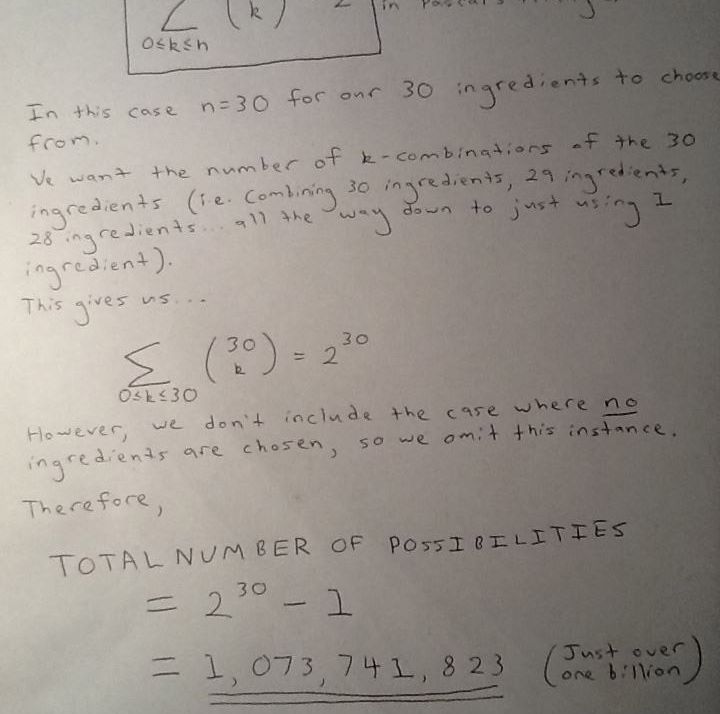 ∑ (k) 2 in
0≤k≤n
In this case n=30 for our 30 ingredients to choose
from.
We want the number of k-combinations of the 30
ingredients (i.e. Combining 30 ingredients, 29 ingredients,
28 ingredients... all the way down to just using 1
ingredient).
This gives us...
∑ (30 k) = 2^30
0≤k≤30
However, we don't include the case where no
ingredients are chosen, so we omit this instance.
Therefore,
TOTAL NUMBER OF POSSIBILITIES
= 2^30 - 1
= 1,073,741,823 (Just over
one billion)